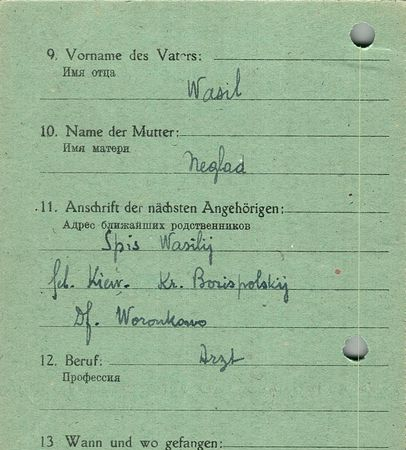 9. Vorname des Vaters:
Имя отца
Wasil
10. Name der Mutter:
Имя матери
Neglad
11. Anschrift der nächsten Angehörigen:
Адрес ближайших родственников
Spis Wasilij
Gb. Kiew. Kr. Borispolskij
Df. Woronkowo
12. Beruf: Arzt
Профессия
13 Wann und wo gefangen: